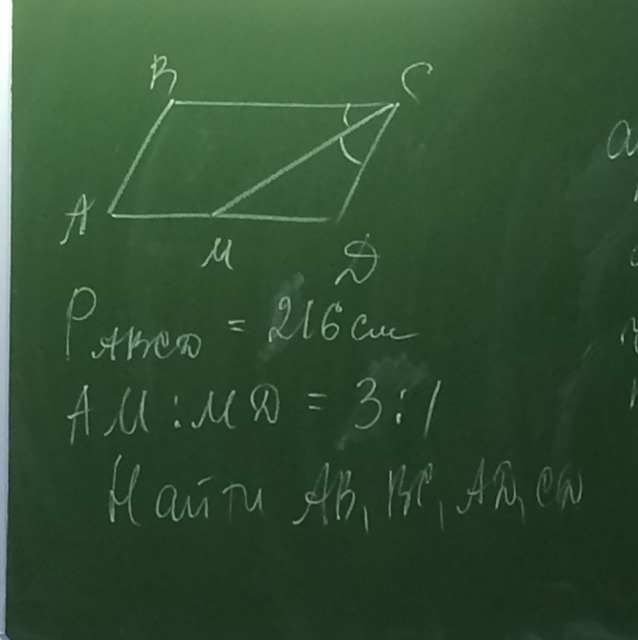 B C
A M D
P ABCD = 216 см
AM : MD = 3 : 1
Найти AB, BC, AD, CD
a